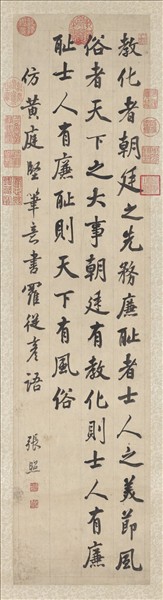 教化者朝廷之先務廉恥者士人之美節風
俗者天下之大事朝廷有教化則士人有廉
恥士人有廉恥則天下有風俗
仿黃庭堅筆意書羅從彥語
張照